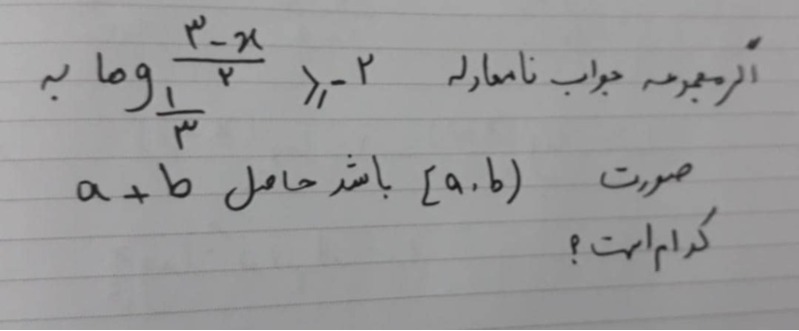 اگر مجموعه جواب نامعادله log_{۱/۳} (۳-x)/۲ ≥ -۲ و ما به
صورت [a, b) باشد حاصل a + b
کدام است؟